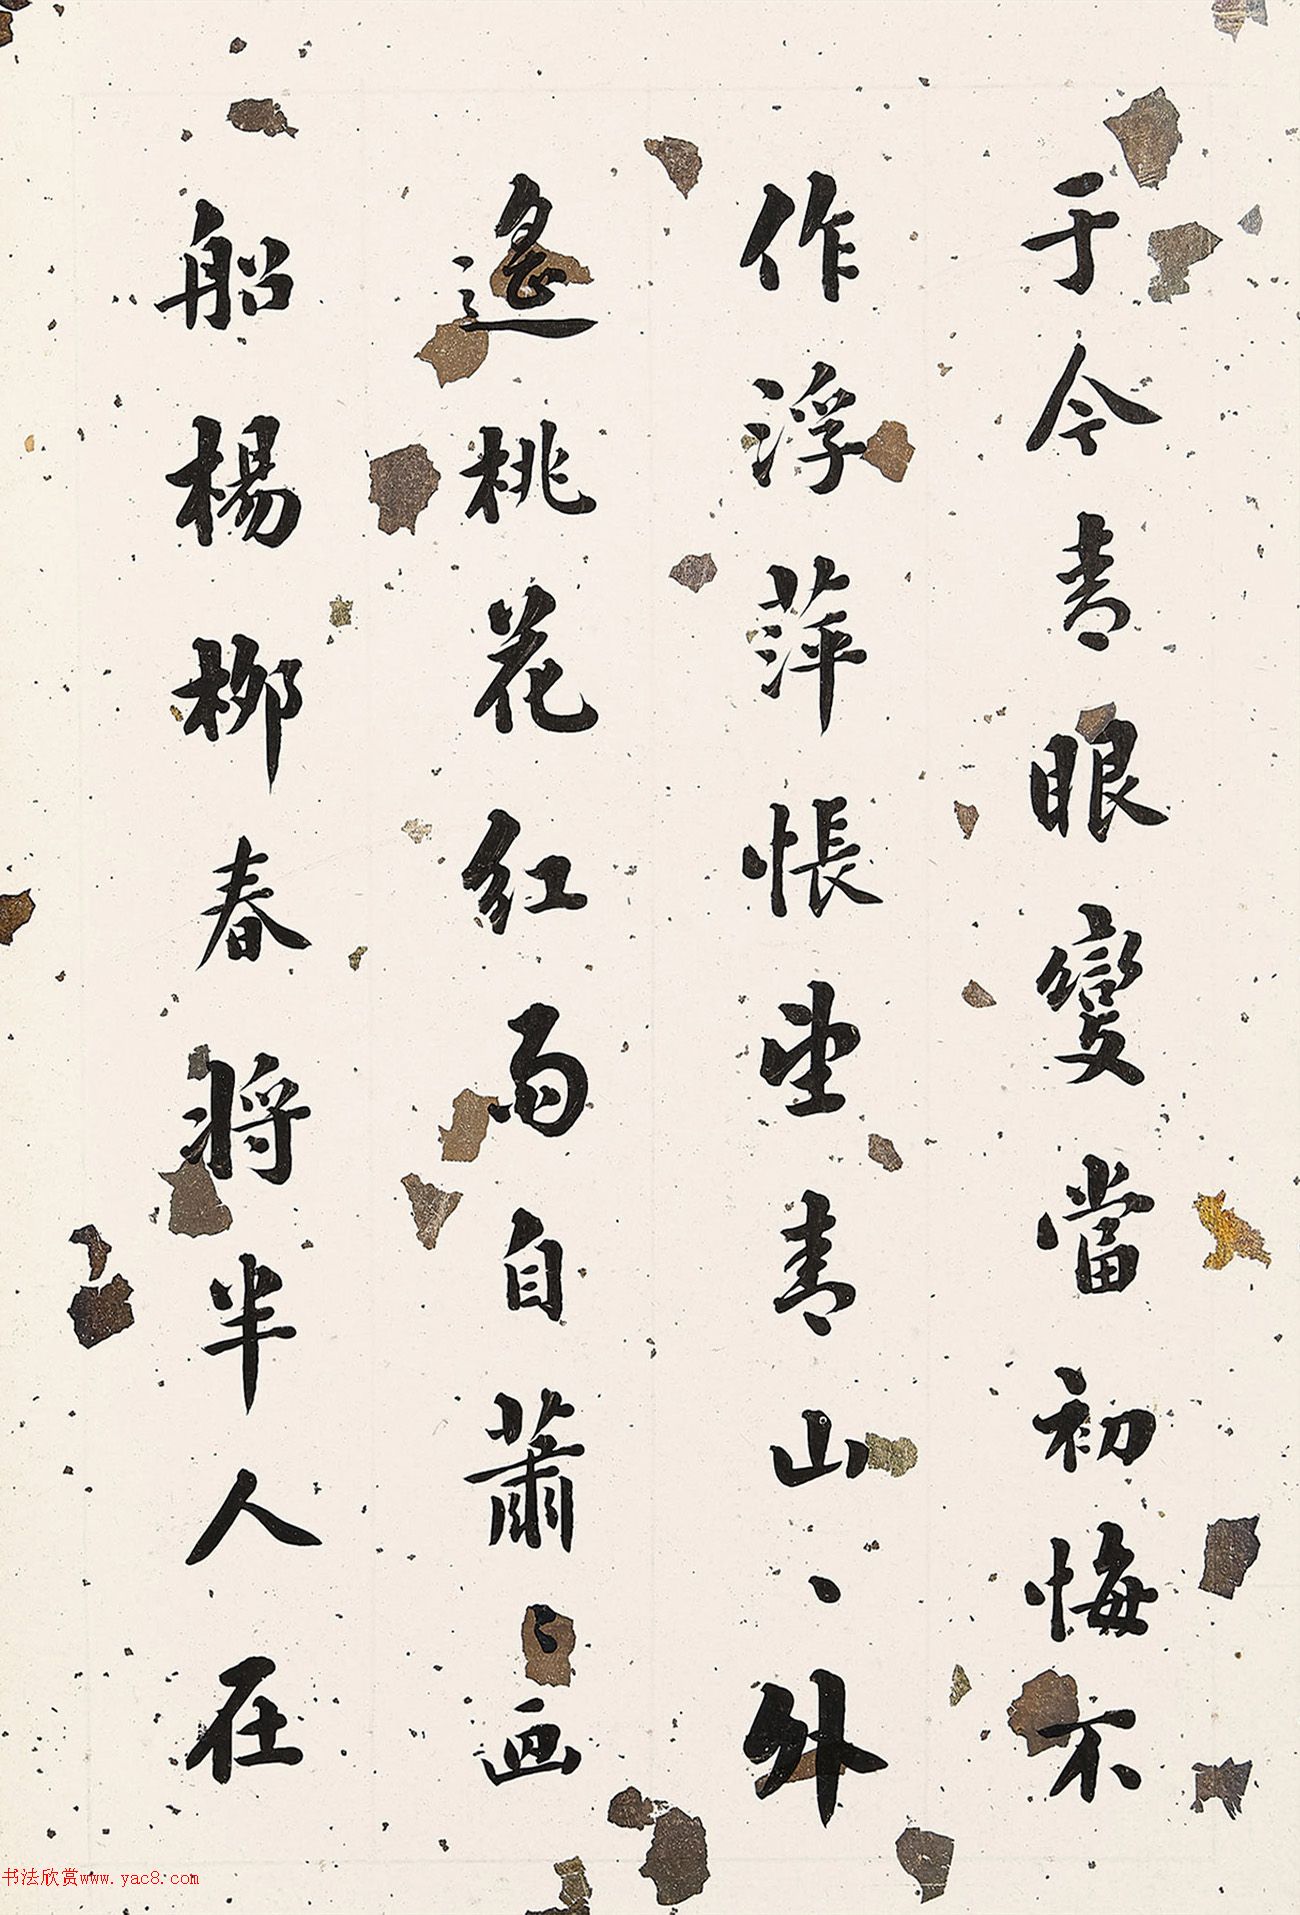 于今青眼變當初悔不
作浮萍悵望青山丶外
遙桃花紅雨自蕭丶画
船楊柳春將半人在
书法欣赏www.yac8.com